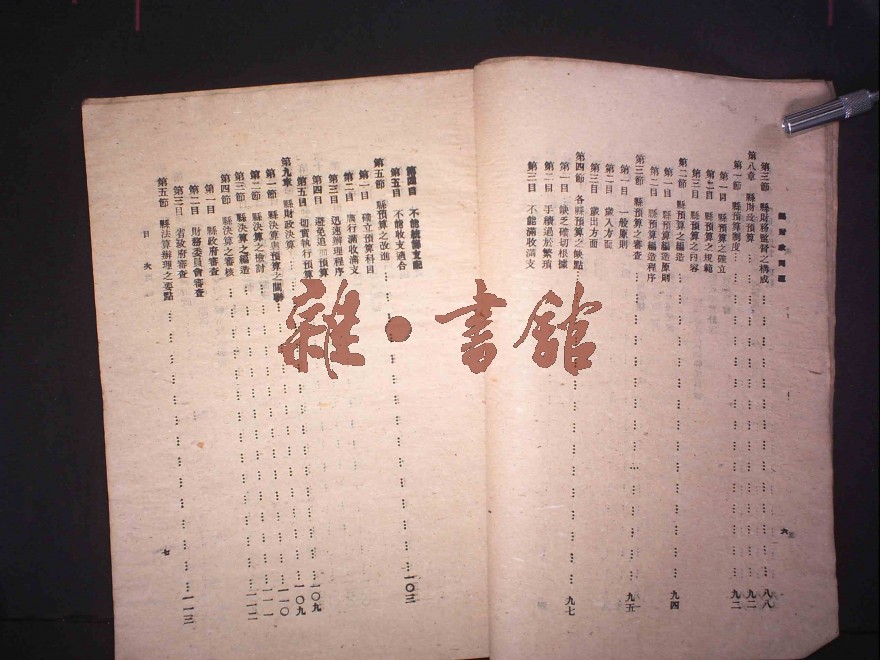 縣財政問題
六
第三節 縣財務監督之構成……八八
第八章 縣財政預算……九二
第一節 縣預算制度……九二
第一目 縣預算之確立
第二目 縣預算之規範
第三目 縣預算之內容
第二節 縣預算之編造……九四
第一目 縣預算編造原則
第二目 縣預算編造程序
第三節 縣預算之審查……九五
第一目 一般原則
第二目 歲入方面
第三目 歲出方面
第四節 各縣預算之缺點……九七
第一目 缺乏確切根據
第二目 手續過於繁瑣
第三目 不能滿收滿支
第四目 不能統籌支配
第五目 不能收支適合
第五節 縣預算之改進……一〇三
第一目 確立預算科目
第二目 厲行滿收滿支
第三目 迅速辦理程序
第四目 避免追加預算
第五目 切實執行預算
第九章 縣財政決算……一〇九
第一節 縣決算與預算之關聯……一〇九
第二節 縣決算之檢討……一一〇
第三節 縣決算之編造……一一一
第四節 縣決算之審核……一一二
第一目 縣政府審查
第二目 財務委員會審查
第三目 省政府審查
第五節 縣決算辦理之要點……一一三
目次
七
雜·書館